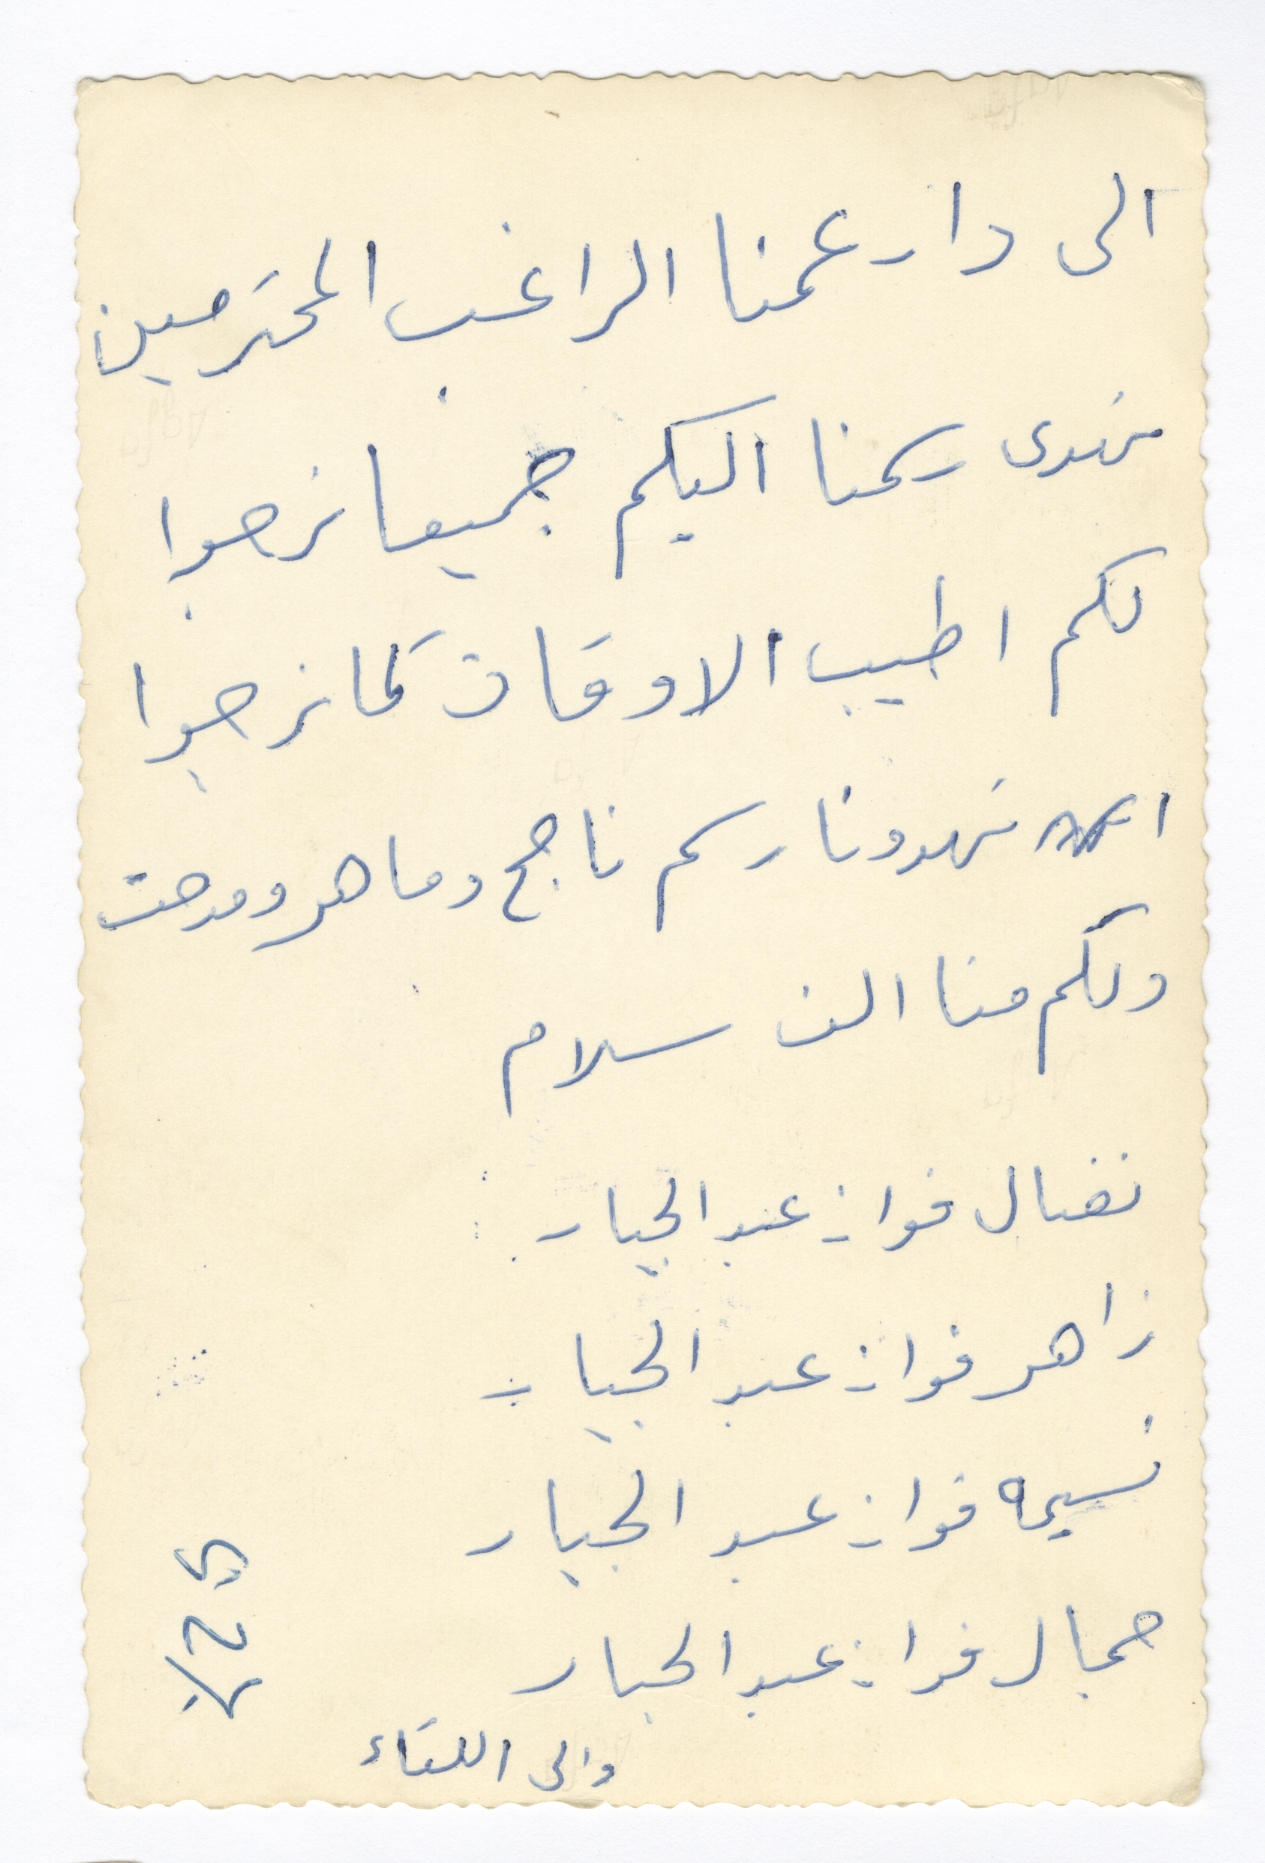 الى دار عمنا الراغب المحترمين
نهدى رسمنا اليكم جميعا نرجوا
لكم اطيب الاوقات كما نرجوا
ا نهدونا رسم ناجح وماهر ومدحت
ولكم منا الف سلام
نضال فواز عبد الجبار
زاهر فواز عبد الجبار
نسيمه فواز عبد الجبار
جمال فواز عبد الجبار
والى اللقاء